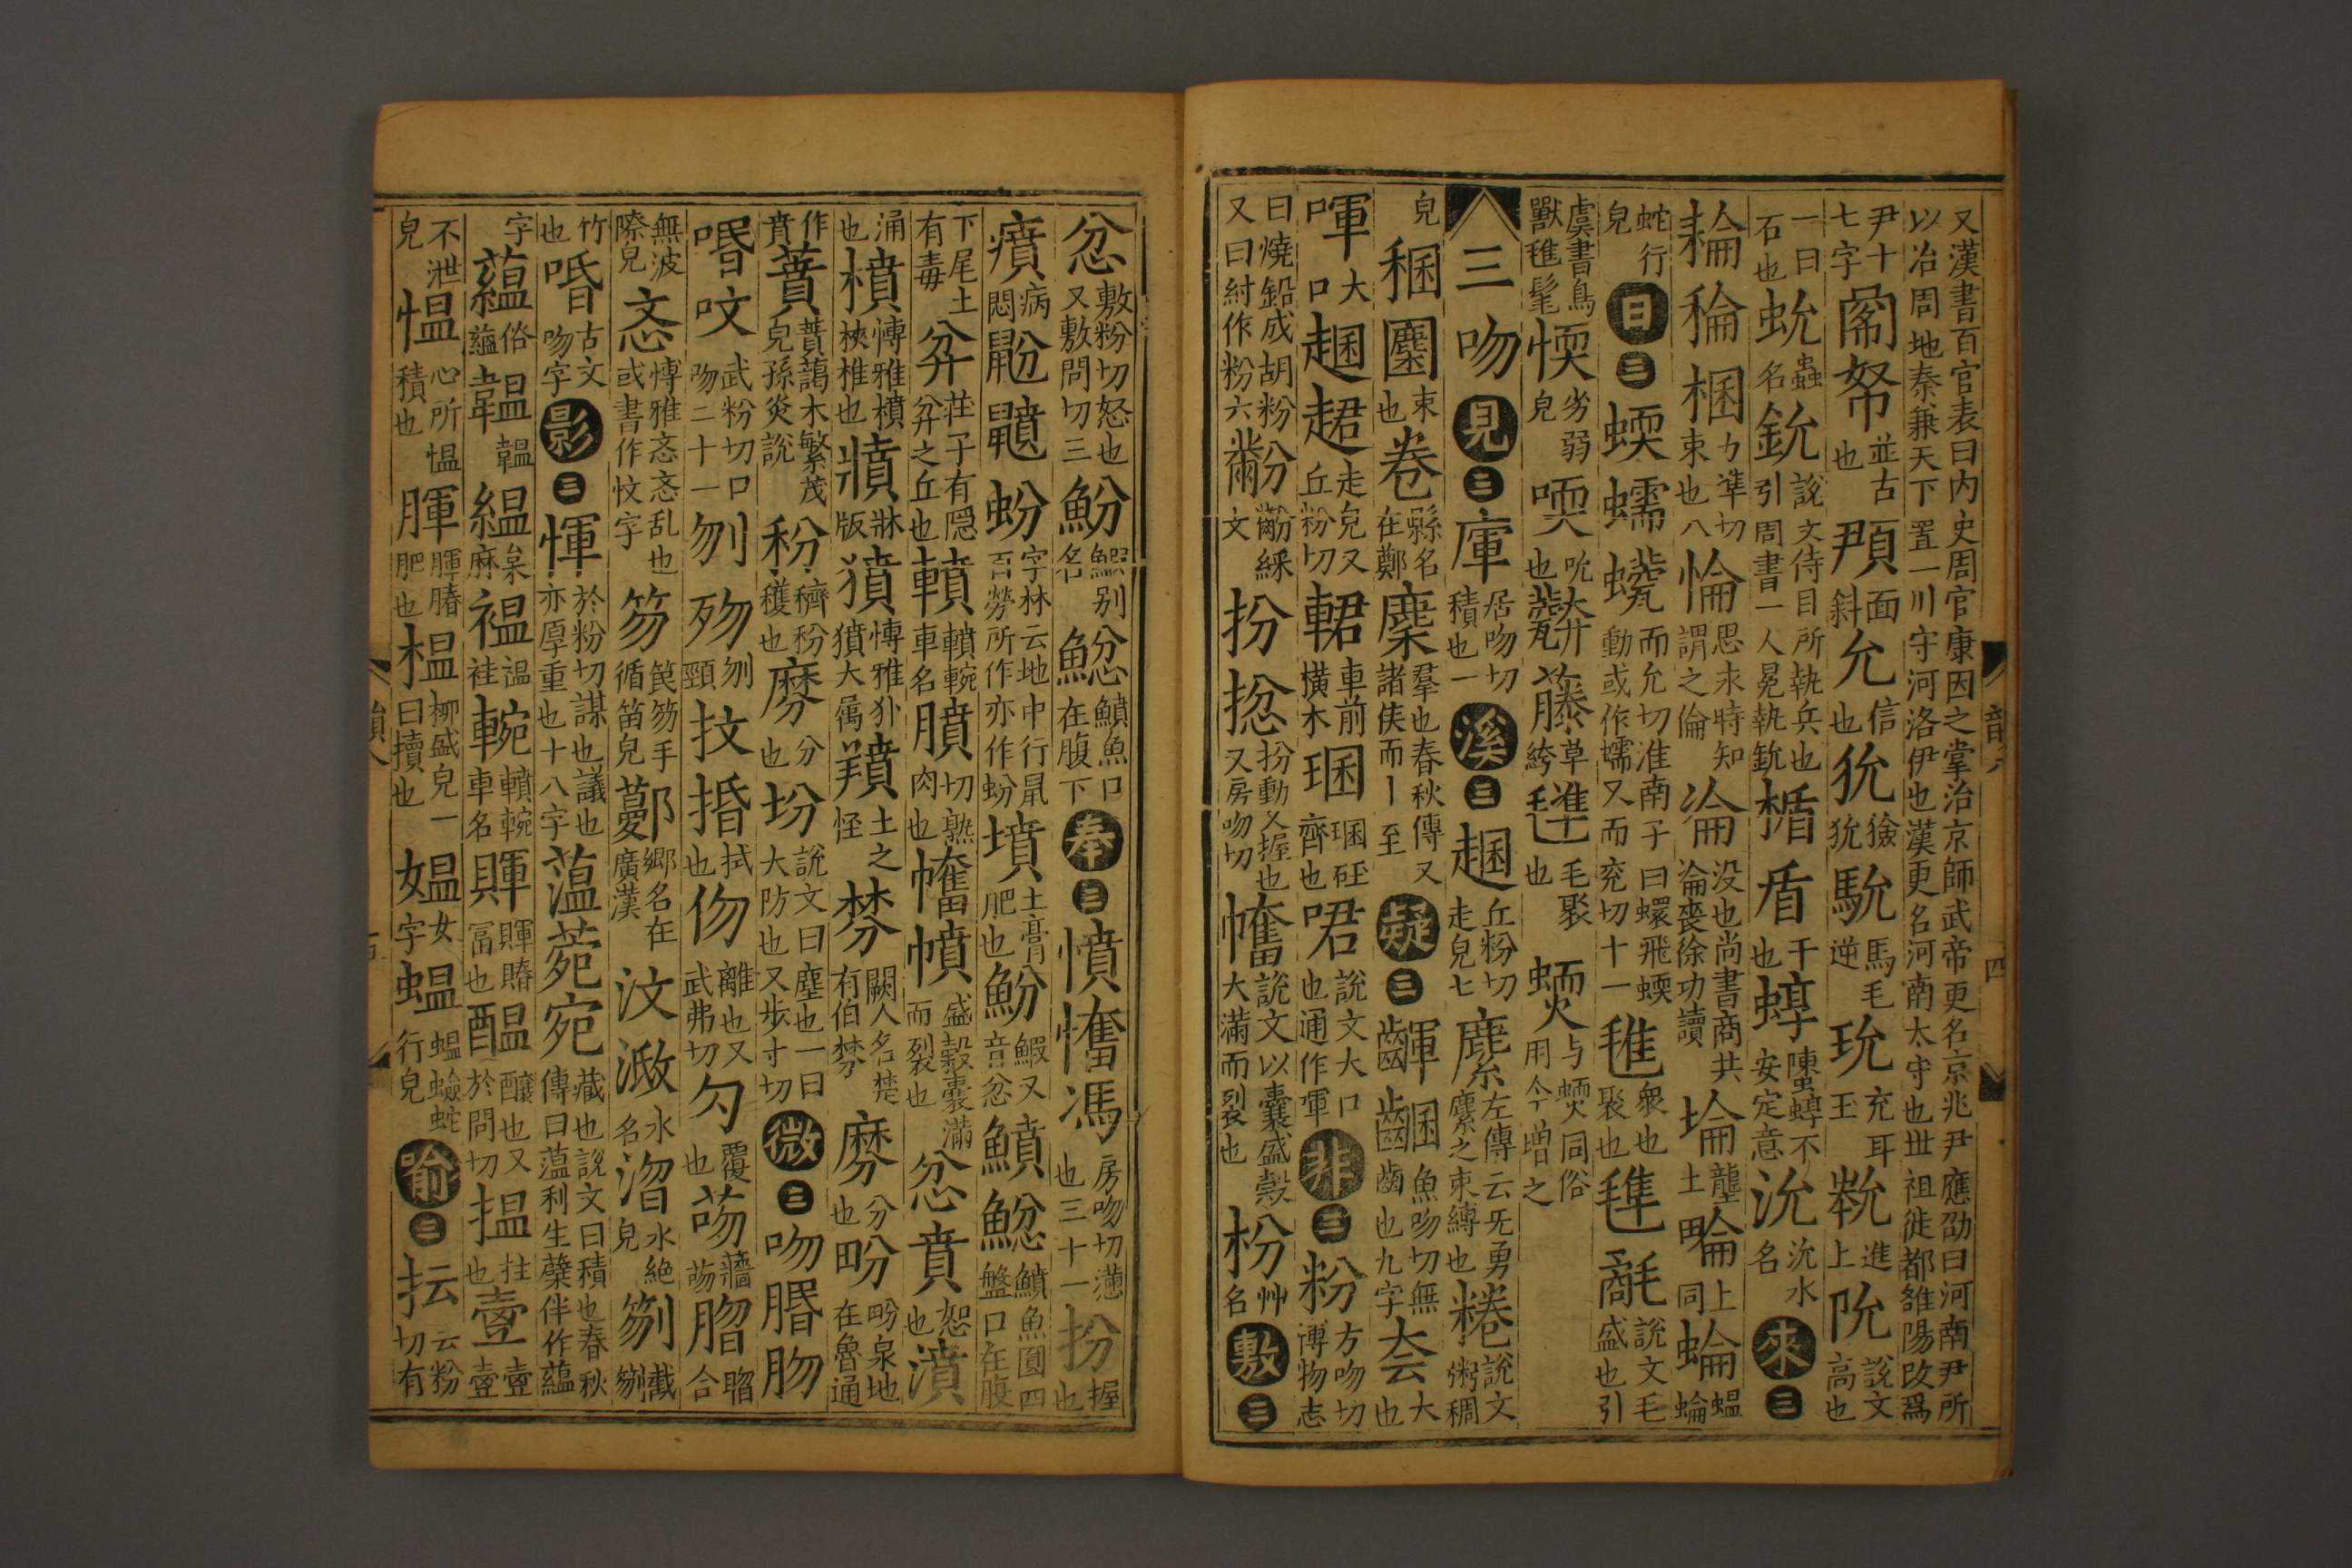 又漢書百官表曰内史周官康因之掌治京師武帝更名京兆尹應劭曰河南尹所
以治周地秦兼天下置一川守河洛伊也漢更名河南太守也丗祖徙都雒陽改爲
尹十七字䦘帑並古也頵面斜允信也狁獫狁馻馬毛逆玧充耳玉㽙進上阭說文高也
一曰石也蚖蟲名鈗說文侍目所執兵也引周書一人冕執鈗楯盾干也蜳䗖蜳不安定意沇沇水名來三
耣稐梱力凖切束也八惀思求時知謂之倫淪没也尚書商共淪喪徐功讀埨壟土㖮上同蜦蝹蜦
蛇行皃日三蝡蠕㽭而允切淮南子曰蠉飛蝡動或作蠕又而兖切十一㲝衆也聚也毴毹說文毛盛也引
虞書鳥獸㲝髦愞劣弱皃㗇吮也䓴䕨草絝毴毛聚也蝡与蝡同俗用今增之
三吻見三㡓居吻切積也一溪三趣丘粉切走皃七麇左傳云旡勇麇之束縛也䊎說文粥稠
皃稇䴢束也卷縣名在鄭麇羣也春秋傳又諸侯而丨至疑三齳齫魚吻切無齒也九字夽大也
喗大口䞫趣走皃又丘粉切輑車前横木琨琨砡齊也㕃說文大口也通作喗非三粉方吻切博物志
曰燒鉛成胡粉又曰紂作粉六黺黺綵文扮㧾扮動也握也又房吻切㡒說文以囊盛榖大滿而裂也枌艸名敷三
忿敷粉切怒也又敷問切三魵鰕别名鯰鱝魚口在腹下奉三憤㥹馮房吻切懣也三十一扮握也
㿎病悶鼢鼲蚡字林云地中行鼠百勞所作亦作蚡墳土膏肥也魵鰕又音忿鱝鯰鱝魚圓四盤口在腹
下尾土有毒弅莊子有隱弅之丘也轒轒輓車名膹切熟肉也㡒幩盛穀囊滿而裂也忿賁恕也濆
涌也橨博雅橨梜椎也㸮牀版獖博雅犿獖大属羵土之怪棼闕人名楚有伯棼黂分也㽹㽹泉地在魯通
作賁蕡蕡藹木繁茂皃孫炎說秎穧秎穫也黂分也坋說文曰塵也一曰大防也又步寸切微三吻脗肳
㖧呅武粉切口吻二十一刎歾刎頸抆捪拭也伆離也又武弗切勿覆也芴蘠芴䐇㫚合
無波際皃忞博雅忞忞乱也或書作忟字笏笢笏手循笛皃䣘鄉名在廣漢汶潣水名㴘水絶皃笏䉵
竹也㖧古文吻字影三惲於粉切謀也議也亦厚重也十八字薀菀宛藏也說文曰積也春秋傳曰薀利生孽伴作蘊
字蘊俗藴韗韞韞縕枲麻褞褞袿輓轒輓車名賱賱賰冨也醖釀也又於問切揾拄也壼壼壼
不泄皃愠心所愠積也腪腪䐏肥也榅柳盛皃一曰積也媼女字蝹蝹蜦蛇行皃喻三抎云粉切有